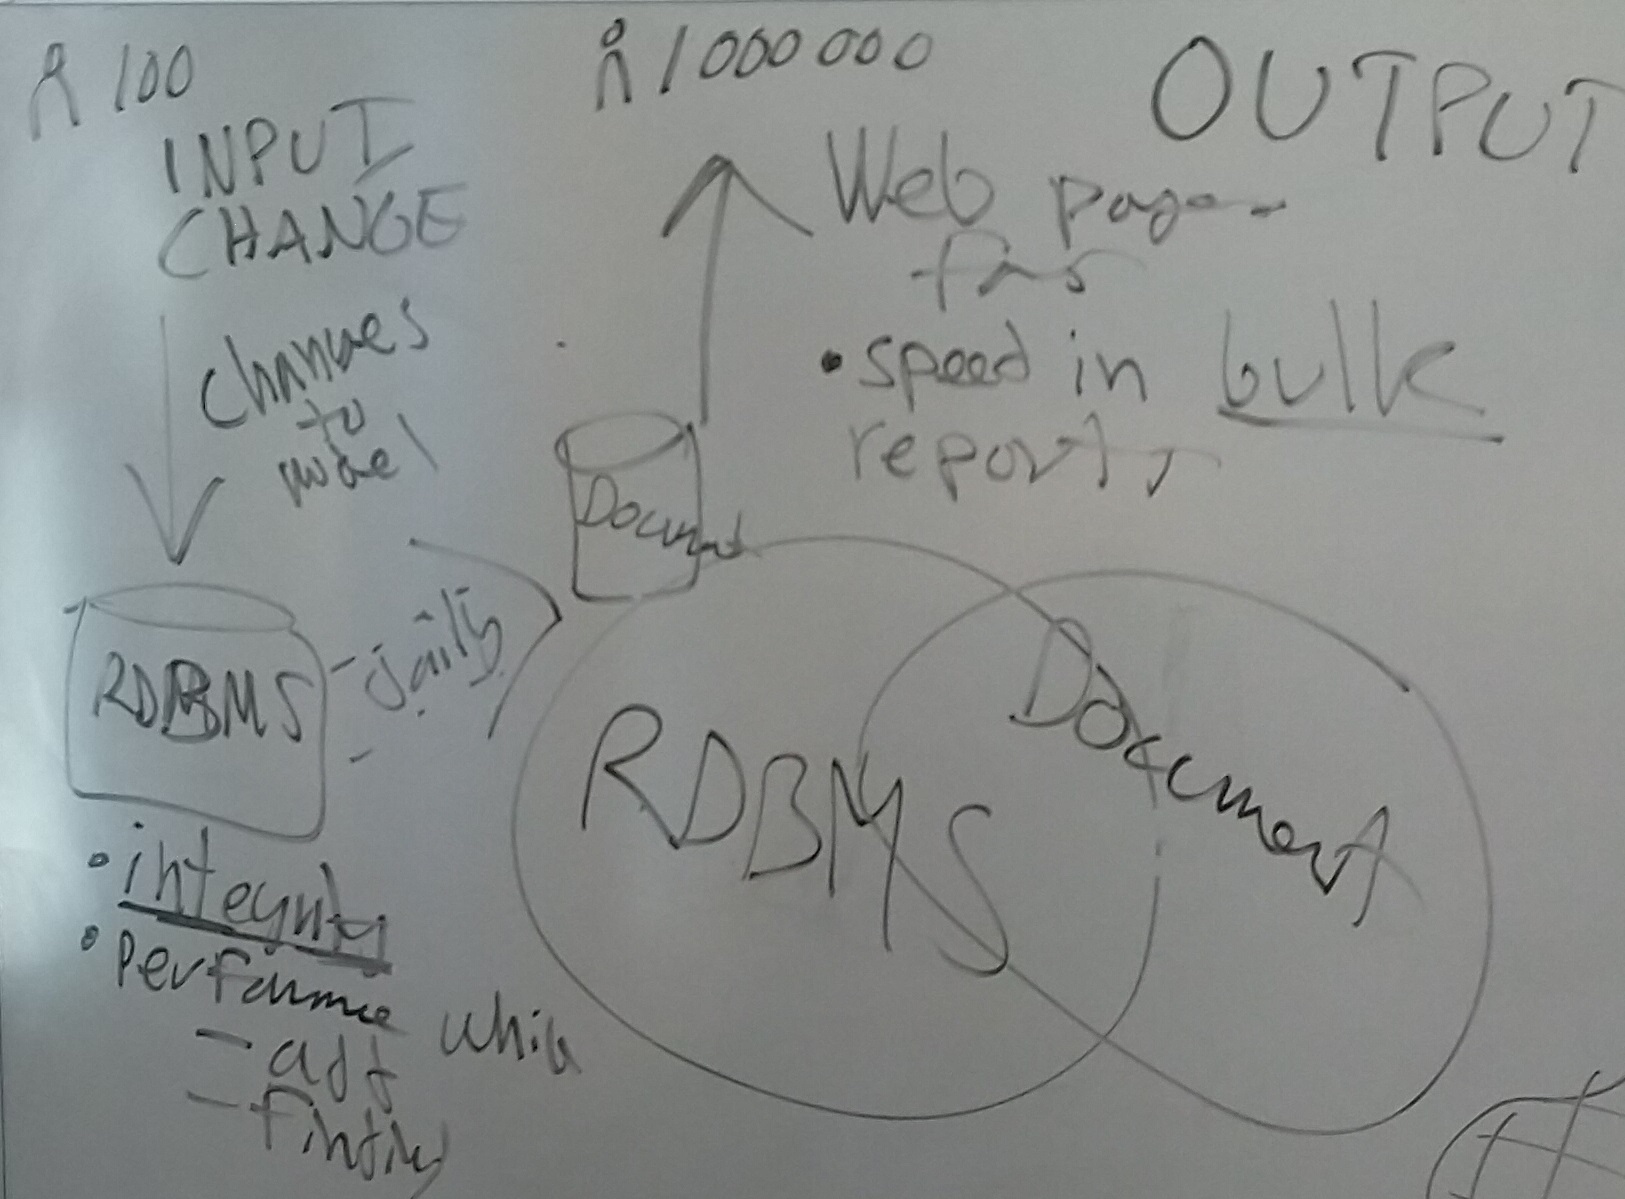 100
INPUT
CHANGE
Changes
to
model
RDBMS
• integrity
• Performance while
- add
- finding
1000 000
OUTPUT
Web page
• speed in bulk
reports
Document
RDBMS
Document